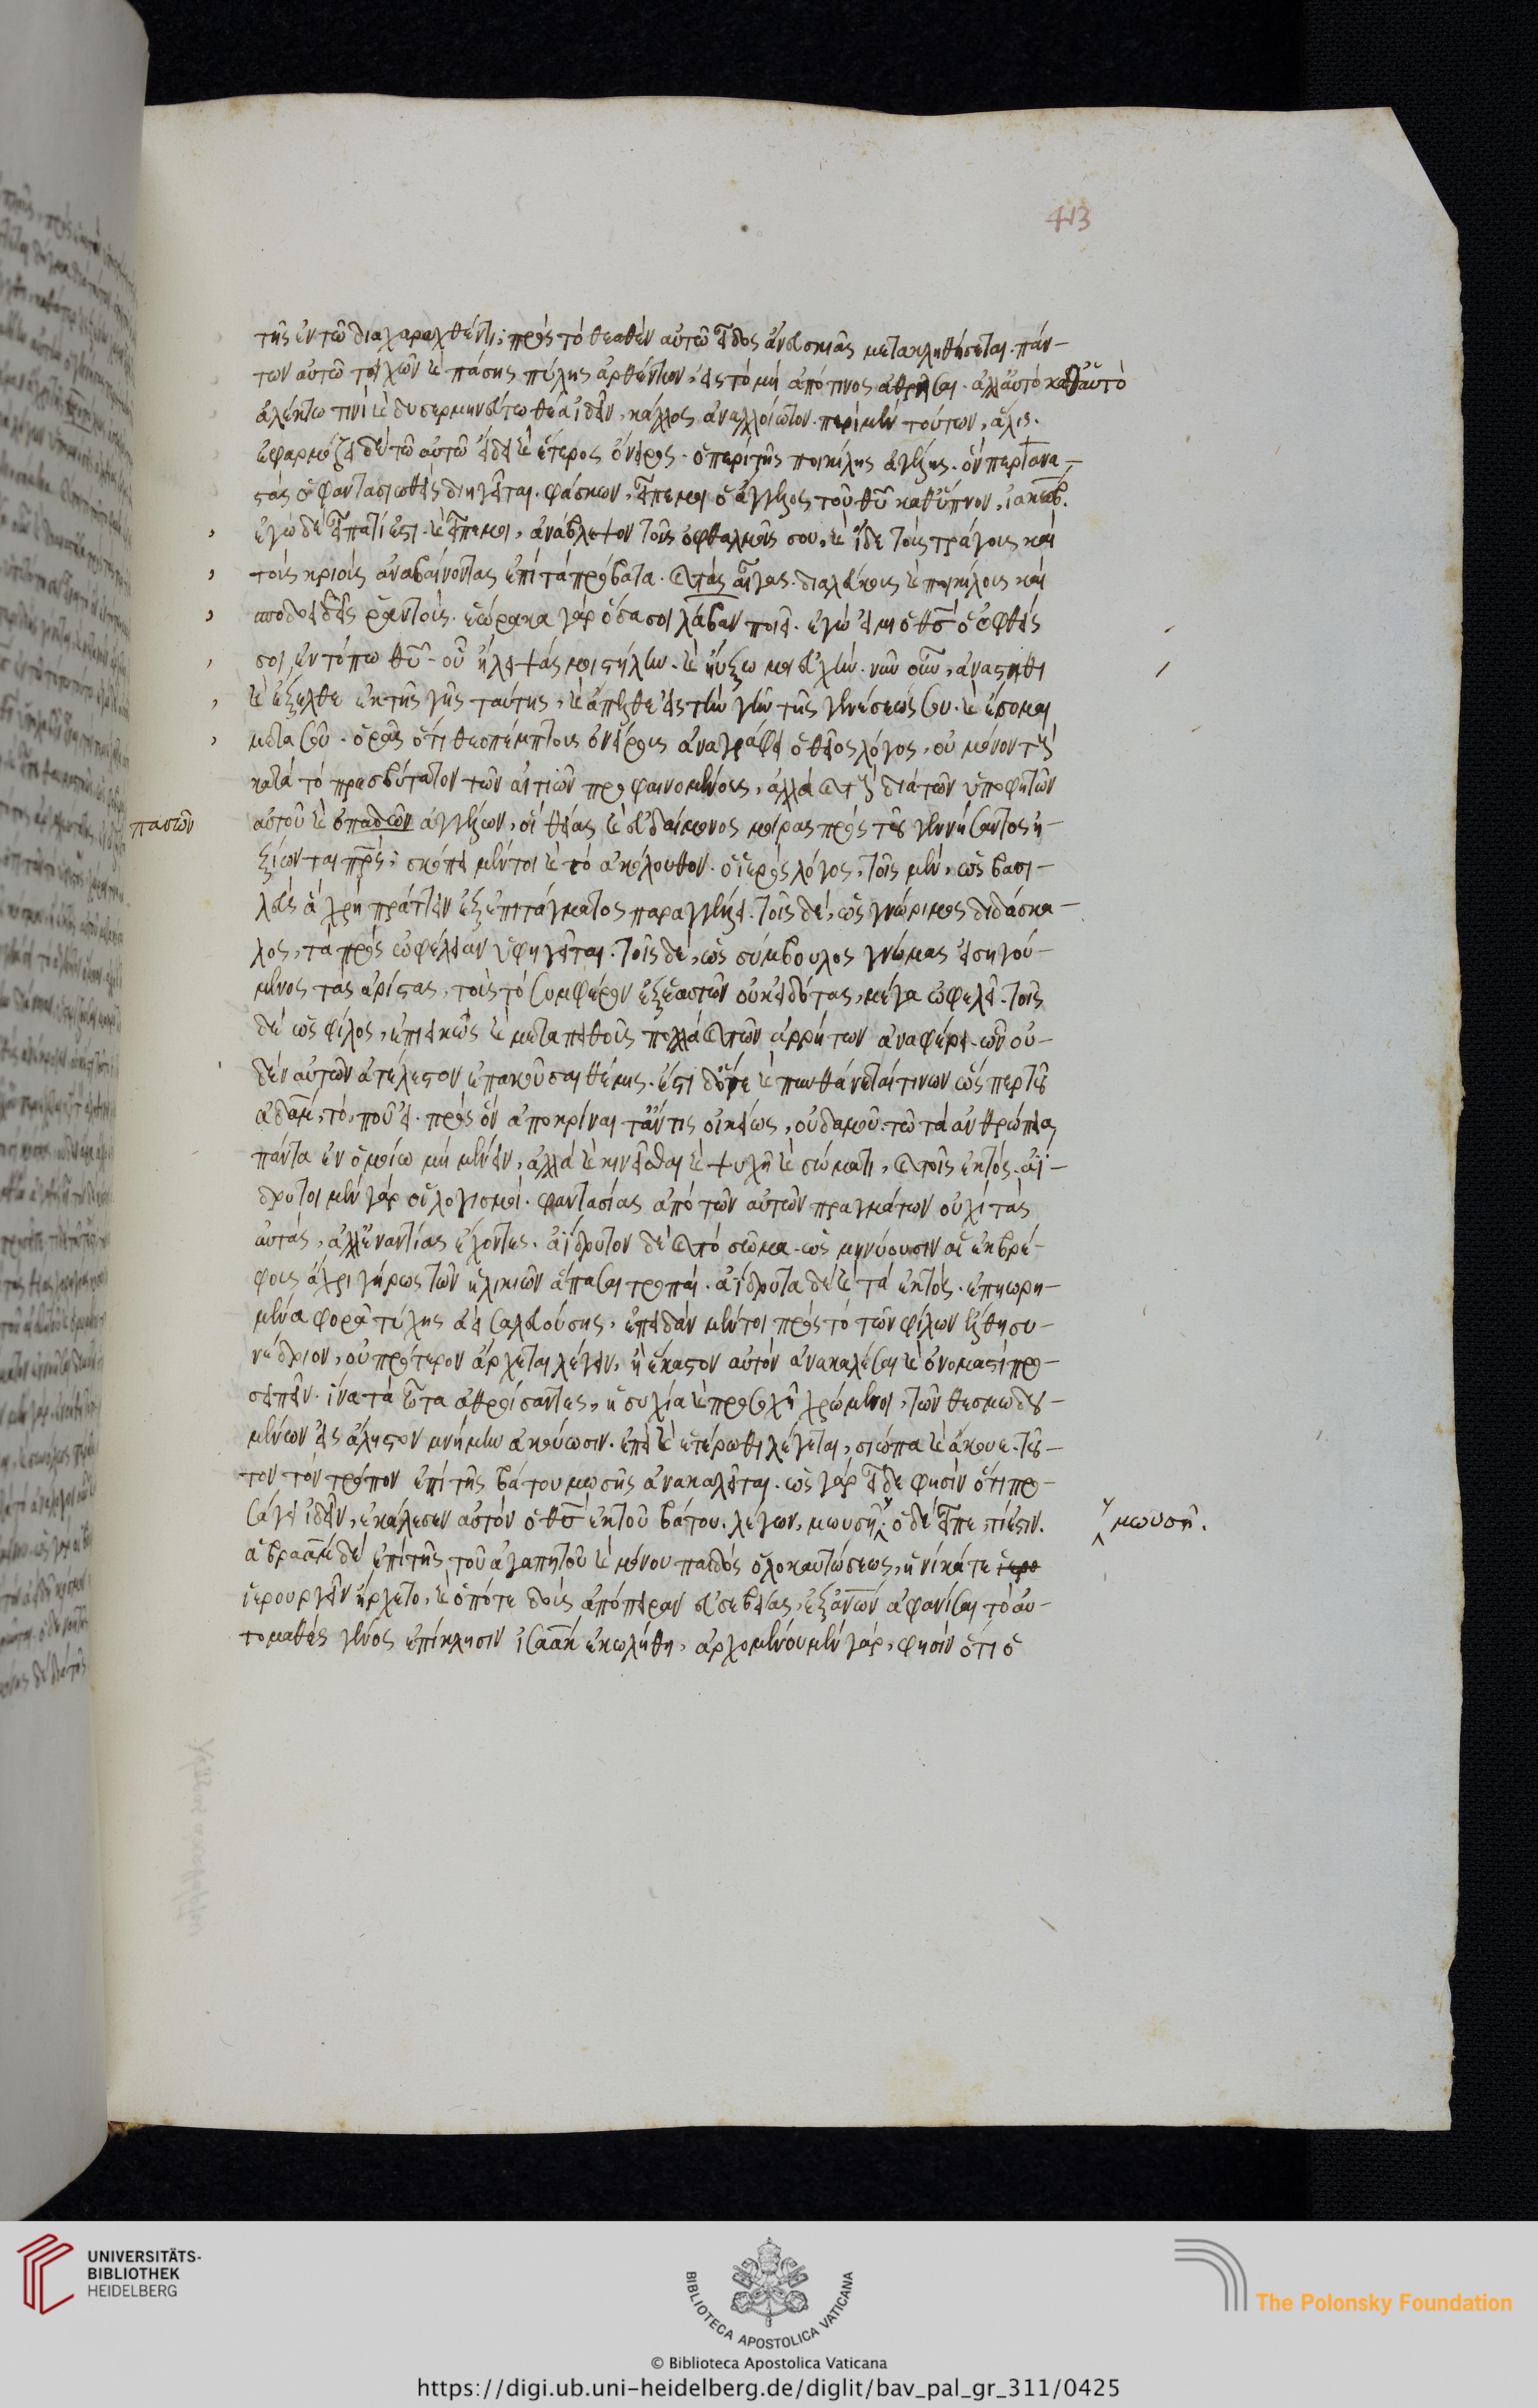 413
τῆς ἐν τῶ διαχαραχθέντι; πρὸς τὸ θεαθὲν αὐτῶ εἶδος ἄνευ σκιᾶς μετακληθήσεται. πάν-
των αὐτῶ τοίχων καὶ πάσης πύλης ἀρθέντων, εἰς τὸ μὴ ἀπό τινος ἀθρῆσαι. ἀλλ' αὐτὸ καθ' αὑτὸ
ἀλέκτω τινὶ καὶ δυσερμηνεύτω θέα ἰδεῖν, κάλλος ἀναλλοίωτον. περὶ μὲν τούτων, ἅλις.
ἐφαρμόζει δὲ τῶ αὐτῶ εἴδει καὶ ἕτερος ὄνειρος. ὁ περὶ τῆς ποικίλης ἀγέλης. ὅνπερ ἀνα-
στὰς ὁ φαντασιωθεὶς διηγεῖται. φάσκων, εἶπέ μοι ὁ ἄγγελος τοῦ θυ καθ' ὕπνον, ἰακώβ.
ἐγὼ δὲ εἶπα τί ἐστι. καὶ εἶπέ μοι, ἀνάβλεψον τοῖς ὀφθαλμοῖς σου, καὶ ἴδε τοὺς τράγους καὶ
τοὺς κριοὺς ἀναβαίνοντας ἐπὶ τὰ πρόβατα. καὶ τὰς αἶγας. διαλεύκους καὶ ποικίλους καὶ
σποδοειδεῖς ῥαντούς. ἑώρακα γὰρ ὅσα σοι λάβαν ποιεῖ. ἐγώ εἰμι ὁ θς ὁ ὀφθείς
σοι ἐν τόπω θυ. οὗ ἤλειψάς μοι στήλην. καὶ ηὔξω μοι εὐχήν. νῦν οὖν, ἀνάστηθι
καὶ ἔξελθε ἐκ τῆς γῆς ταύτης, καὶ ἄπελθε εἰς τὴν γῆν τῆς γενέσεώς σου. καὶ ἔσομαι
μετὰ σοῦ. ὁρᾶς ὅτι θεοπέμπτους ὀνείρους ἀναγράφει ὁ θεῖος λόγος, οὐ μόνον τοὺς
κατὰ τὸ πρεσβύτατον τῶν αἰτιῶν προφαινομένους, ἀλλὰ καὶ τοὺς διὰ τῶν ὑποφητῶν
πασῶν
αὐτοῦ καὶ ὀπαδῶν ἀγγέλων, οἳ θείας καὶ εὐδαίμονος μοίρας πρὸς τοῦ γεννήσαντος ἠ-
ξίωνται πρς; σκόπει μέντοι καὶ τὸ ἀκόλουθον. ὁ ἱερὸς λόγος, τοῖς μὲν, ὡς βασι-
λεὺς ἃ χρὴ πράττειν ἐξ ἐπιτάγματος παραγγέλλει. τοῖς δὲ, ὡς γνώριμος διδάσκα-
λος, τὰ πρὸς ὠφέλειαν ὑφηγεῖται. τοῖς δὲ, ὡς σύμβουλος γνώμας εἰσηγού-
μενος τὰς ἀρίστας, τοὺς τὸ συμφέρον ἐξ ἑαυτῶν οὐκ εἰδότας, μέγα ὠφελεῖ. τοῖς
δὲ ὡς φίλος, ἐπιεικῶς καὶ μετὰ πειθοῦς πολλὰ καὶ τῶν ἀρρήτων ἀναφέρει. ὧν οὐ-
δὲν αὐτῶν ἀτέλεστον ἐπακοῦσαι θέμις. ἔστι δ' ὅτε καὶ πυνθάνεταί τινων ὥσπερ τοῦ
ἀδὰμ, τὸ, ποῦ εἶ. πρὸς ὃν ἀποκρίναιτ' ἄν τις οἰκείως, οὐδαμοῦ. τῶ τὰ ἀνθρώπεια
πάντα ἐν ὁμοίω μὴ μένειν, ἀλλὰ καὶ κινεῖσθαι καὶ ψυχῆ καὶ σώματι, καὶ τοῖς ἐκτός. ἀΐ-
δρυτοι μὲν γὰρ οἱ λογισμοί. φαντασίας ἀπὸ τῶν αὐτῶν πραγμάτων οὐχὶ τὰς
αὐτὰς, ἀλλ' ἐναντίας ἔχοντες. ἀΐδρυτον δὲ καὶ τὸ σῶμα. ὡς μηνύουσιν αἱ ἐκ βρέ-
φους ἄχρι γήρως τῶν ἡλικιῶν ἅπασαι τροπαί. ἀΐδρυτα δὲ καὶ τὰ ἐκτός. ἐπηωρη-
μένα φορᾶ τύχης ἀεὶ σαλευούσης, ἐπειδὰν μέντοι πρὸς τὸ τῶν φίλων ἔλθη συ-
νέδριον, οὐ πρότερον ἄρχεται λέγειν, ἢ ἕκαστον αὐτὸν ἀνακαλέσαι καὶ ὀνομαστὶ προ-
σειπεῖν. ἵνα τὰ ὦτα ἀθροίσαντες, ἡσυχία καὶ προσοχῆ χρώμενοι, τῶν θεσμωδου-
μένων εἰς ἄληστον μνήμην ἀκούωσιν. ἐπεὶ καὶ ἑτέρωθι λέγεται, σιώπα καὶ ἄκουε. τοῦ-
τον τὸν τρόπον ἐπὶ τῆς βάτου μωσῆς ἀνακαλεῖται. ὡς γὰρ εἶδε φησὶν ὅτι προ-
σάγει ἰδεῖν, ἐκάλεσεν αὐτὸν ὁ θς ἐκ τοῦ βάτου. λέγων, μωυσῆ· ὁ δὲ εἶπε τί ἐστιν.
μωυσῆ.
ἀβραὰμ δὲ ἐπὶ τῆς τοῦ ἀγαπητοῦ καὶ μόνου παιδὸς ὁλοκαυτώσεως, ἡνίκα τε ἱερο
ἱερουργεῖν ἤρχετο, καὶ ὁπότε δοὺς ἀπόπειραν εὐσεβείας, ἐξ ἀνων ἀφανίσαι τὸ αὐ-
τομαθὲς γένος ἐπίκλησιν ἰσαὰκ ἐκωλύθη, ἀρχομένου μὲν γὰρ, φησὶν ὅτι ὁ
UNIVERSITÄTS-
BIBLIOTHEK
HEIDELBERG
BIBLIOTECA APOSTOLICA VATICANA
The Polonsky Foundation
© Biblioteca Apostolica Vaticana
https://digi.ub.uni-heidelberg.de/diglit/bav_pal_gr_311/0425